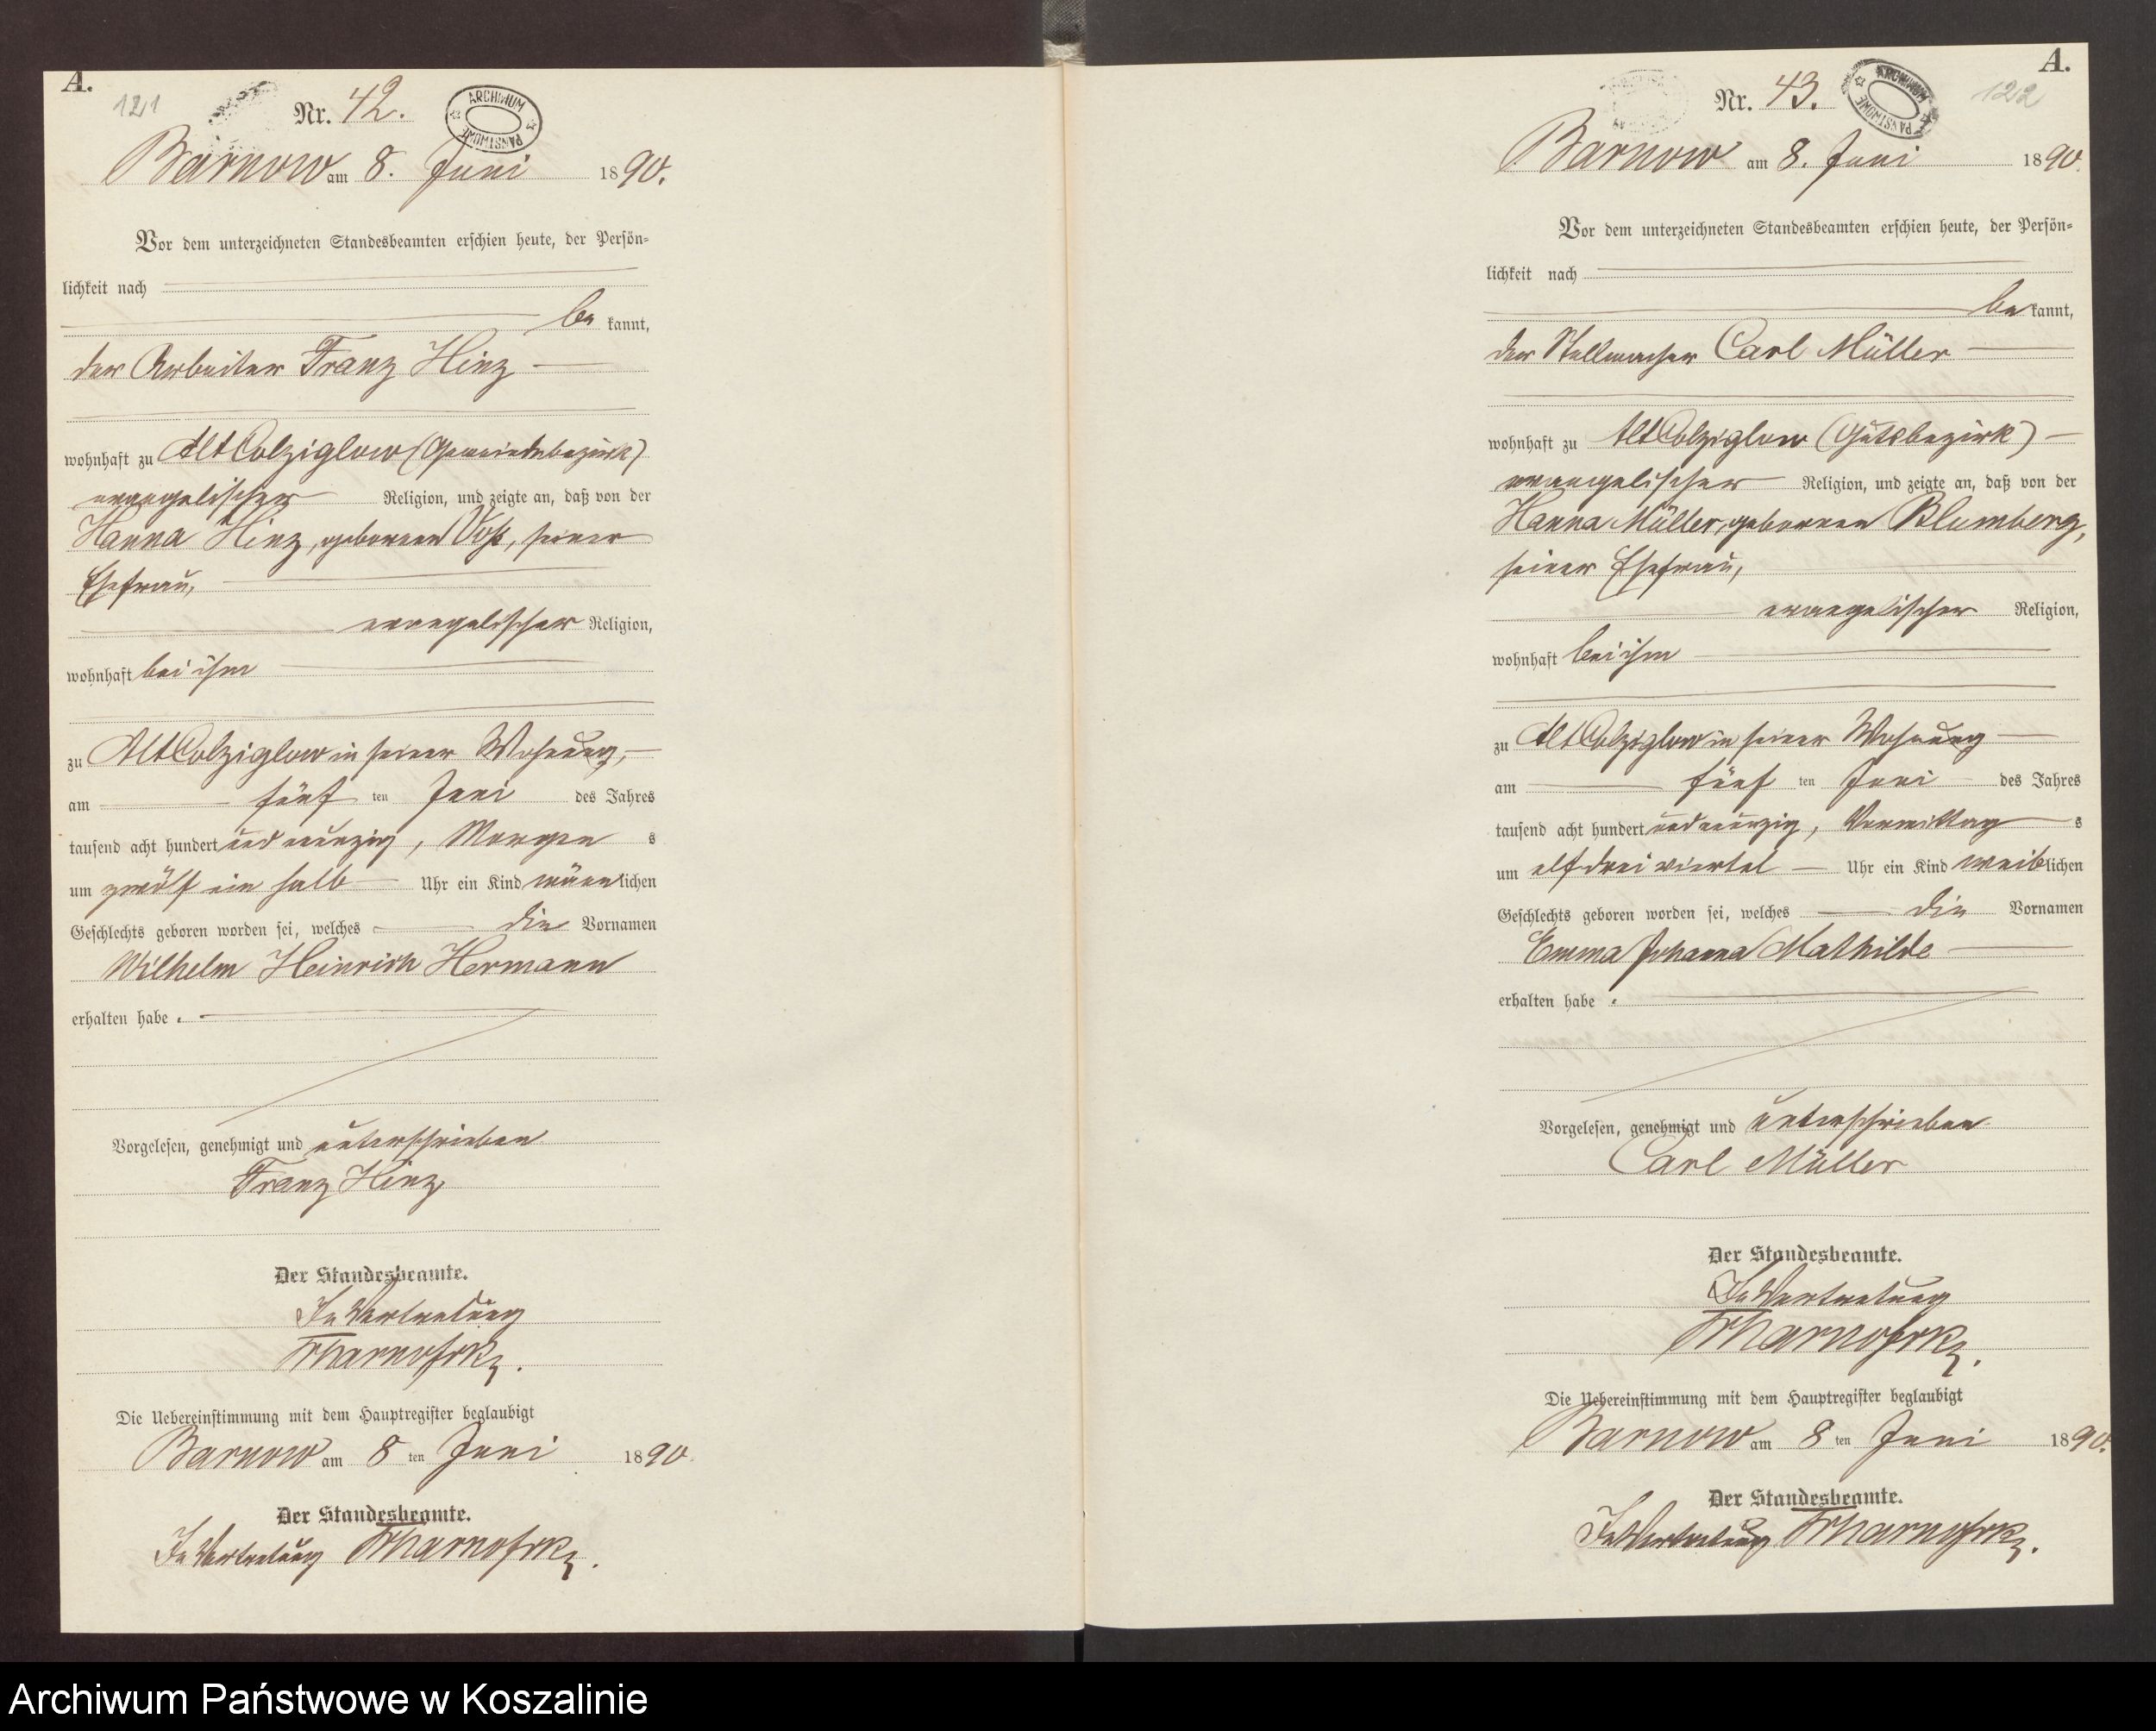 A.
121
Nr. 42.
ARCHIWUM PAŃSTWOWE
Barnow am 8. Juni 1890.
Vor dem unterzeichneten Standesbeamten erschien heute, der Persön-
lichkeit nach
be kannt,
der Arbeiter Franz Hinz
wohnhaft zu Alt Colziglow (Gemeindebezirk)
evangelischer Religion, und zeigte an, daß von der
Hanna Hinz, geborenen Voß, seiner
Ehefrau,
evangelischer Religion,
wohnhaft bei ihm
zu Alt Colziglow in seiner Wohnung,
am fünf ten Juni des Jahres
tausend acht hundert und neunzig, Morgen s
um zwölf ein halb Uhr ein Kind männlichen
Geschlechts geboren worden sei, welches die Vornamen
Wilhelm Heinrich Hermann
erhalten habe.
Vorgelesen, genehmigt und unterschrieben
Franz Hinz
Der Standesbeamte.
In Vertretung
Die Uebereinstimmung mit dem Hauptregister beglaubigt
Barnow am 8 ten Juni 1890.
Der Standesbeamte.
In Vertretung
A.
122
Nr. 43.
ARCHIWUM PAŃSTWOWE
Barnow am 8. Juni 1890.
Vor dem unterzeichneten Standesbeamten erschien heute, der Persön-
lichkeit nach
be kannt,
der Stellmacher Carl Müller
wohnhaft zu Alt Colziglow (Gutsbezirk)
evangelischer Religion, und zeigte an, daß von der
Hanna Müller, geborenen Blumberg,
seiner Ehefrau,
evangelischer Religion,
wohnhaft bei ihm
zu Alt Colziglow in seiner Wohnung
am fünf ten Juni des Jahres
tausend acht hundert und neunzig, Vormittag s
um elf drei viertel Uhr ein Kind weiblichen
Geschlechts geboren worden sei, welches die Vornamen
Emma Johanna Mathilde
erhalten habe.
Vorgelesen, genehmigt und unterschrieben
Carl Müller
Der Standesbeamte.
In Vertretung
Die Uebereinstimmung mit dem Hauptregister beglaubigt
Barnow am 8 ten Juni 1890.
Der Standesbeamte.
In Vertretung
Archiwum Państwowe w Koszalinie